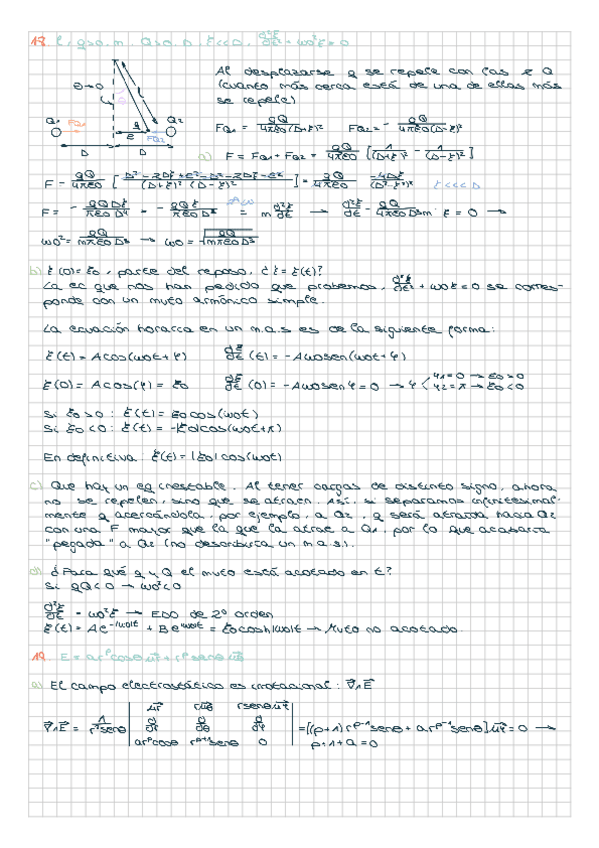 18. ℓ, q>0, m, Q>0, D, ξ<<D, d²ξ/dt² + ωo²ξ = 0
Al desplazarse q se repele con las 2 Q
θ→0
(cuanto más cerca está de una de ellas más
se repele)
L
Q1 FQ2 q Q2
ξ FQ1
D D
FQ1 = qQ/4πεo(D+ξ)² FQ2 = - qQ/4πεo(D-ξ)²
a) F = FQ1 + FQ2 = qQ/4πεo [1/(D+ξ)² - 1/(D-ξ)²]
F = qQ/4πεo [D² - 2Dξ + ξ² - D² - 2Dξ - ξ²/(D+ξ)² (D-ξ)²] = qQ/4πεo -4Dξ/(D²-ξ²)² ξ<<<D
F = - qQDξ/πεoD⁴ = - qQξ/πεoD³ = m d²ξ/dt² → d²ξ/dt² - qQ/4πεoD³m · ξ = 0 →
ωo² = qQ/mπεoD³ → ωo = √qQ/√mπεoD³
b) ξ(0) = ξo, parte del reposo, ¿ξ = ξ(t)?
La ec que nos han pedido que probemos, d²ξ/dt² + ωo²ξ = 0 se corres-
ponde con un mvto armónico simple.
La ecuación horaria en un m.a.s es de la siguiente forma:
ξ(t) = Acos(ωot + φ) dξ/dt (t) = -Aωosen(ωot + φ)
ξ(0) = Acos(φ) = ξo dξ/dt (0) = -Aωosenφ = 0 → φ < φ1 = 0 → ξo > 0 φ2 = π → ξo < 0
Si ξo > 0 : ξ(t) = ξocos(ωot)
Si ξo < 0 : ξ(t) = -|ξo|cos(ωot + π)
En definitiva : ξ(t) = |ξo|cos(ωot)
c) Que hay un eq inestable. Al tener cargas de distinto signo, ahora
no se repelen, sino que se atraen. Así, si separamos infinitesimal-
mente q acercándola, por ejemplo, a Q2, q será atraída hacia Q2
con una F mayor que la que la atrae a Q1, por lo que acabaría
"pegada" a Q2 (no describiría un m.a.s).
d) ¿Para qué q y Q el mvto está acotado en t?
Si qQ<0 → ωo²<0
d²ξ/dt² = ωo²ξ → EDO de 2º orden
ξ(t) = Ae^-|ωo|t + Be^ωot = ξocosh|ωo|t → Mvto no acotado.
19. E = ar^p cosθ ur + r^p senθ uθ
a) El campo electrostático es irrotacional : ∇∧E
ur ruθ rsenθuφ
∇∧E = 1/r²senθ | d/dr d/dθ d/dφ | = [(p+1)r^p-1 senθ + ar^p-1 senθ]uφ = 0 →
ar^p cosθ r^p+1 senθ 0 p+1+a = 0